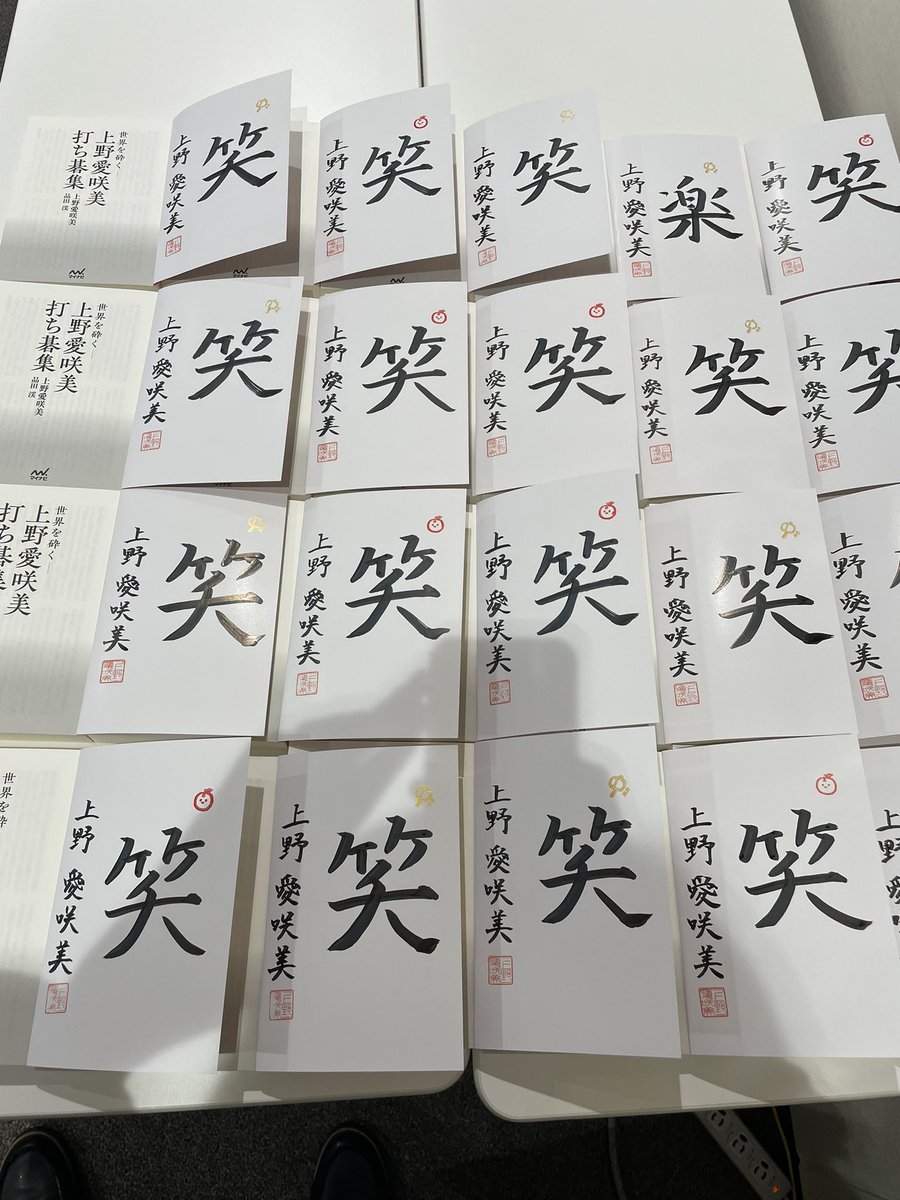 世界を砕く
上野愛咲美
打ち碁集
上野愛咲美
品田 渓
マイナビ
笑
上野 愛咲美
笑
上野 愛咲美
笑
上野 愛咲美
楽
上野 愛咲美
笑
上野 愛咲美
世界を砕く
上野愛咲美
打ち碁集
上野愛咲美
品田 渓
マイナビ
笑
上野 愛咲美
笑
上野 愛咲美
笑
上野 愛咲美
笑
上野 愛咲美
笑
上野 愛咲美
世界を砕く
上野愛咲美
打ち碁集
笑
上野 愛咲美
笑
上野 愛咲美
笑
上野 愛咲美
笑
上野 愛咲美
上野 愛咲美
世界を砕
笑
上野 愛咲美
笑
上野 愛咲美
笑
上野 愛咲美
笑
上野 愛咲美